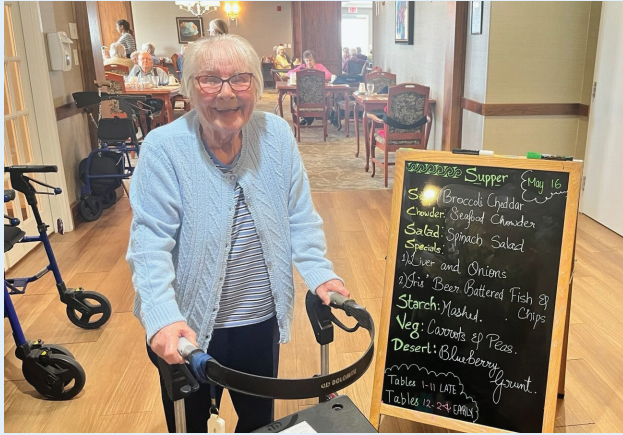 Supper
May 16
Soup: Broccoli Cheddar
Chowder: Seafood Chowder
Salad: Spinach Salad
Specials:
1) Liver and Onions
2) Iris' Beer Battered Fish &
Chips
Starch: Mashed.
Veg: Carrots & Peas.
Desert: Blueberry
Grunt.
Tables 1-11 LATE
Tables 12-24 EARLY
DOLOMITE